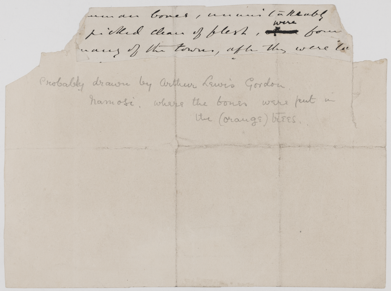 human bones, unmistakably
picked clean of flesh, were foun
many of the towns, after they were ta
Probably drawn by Arthur Lewis Gordon
Namosi, where the bones were put in
the (orange) trees.